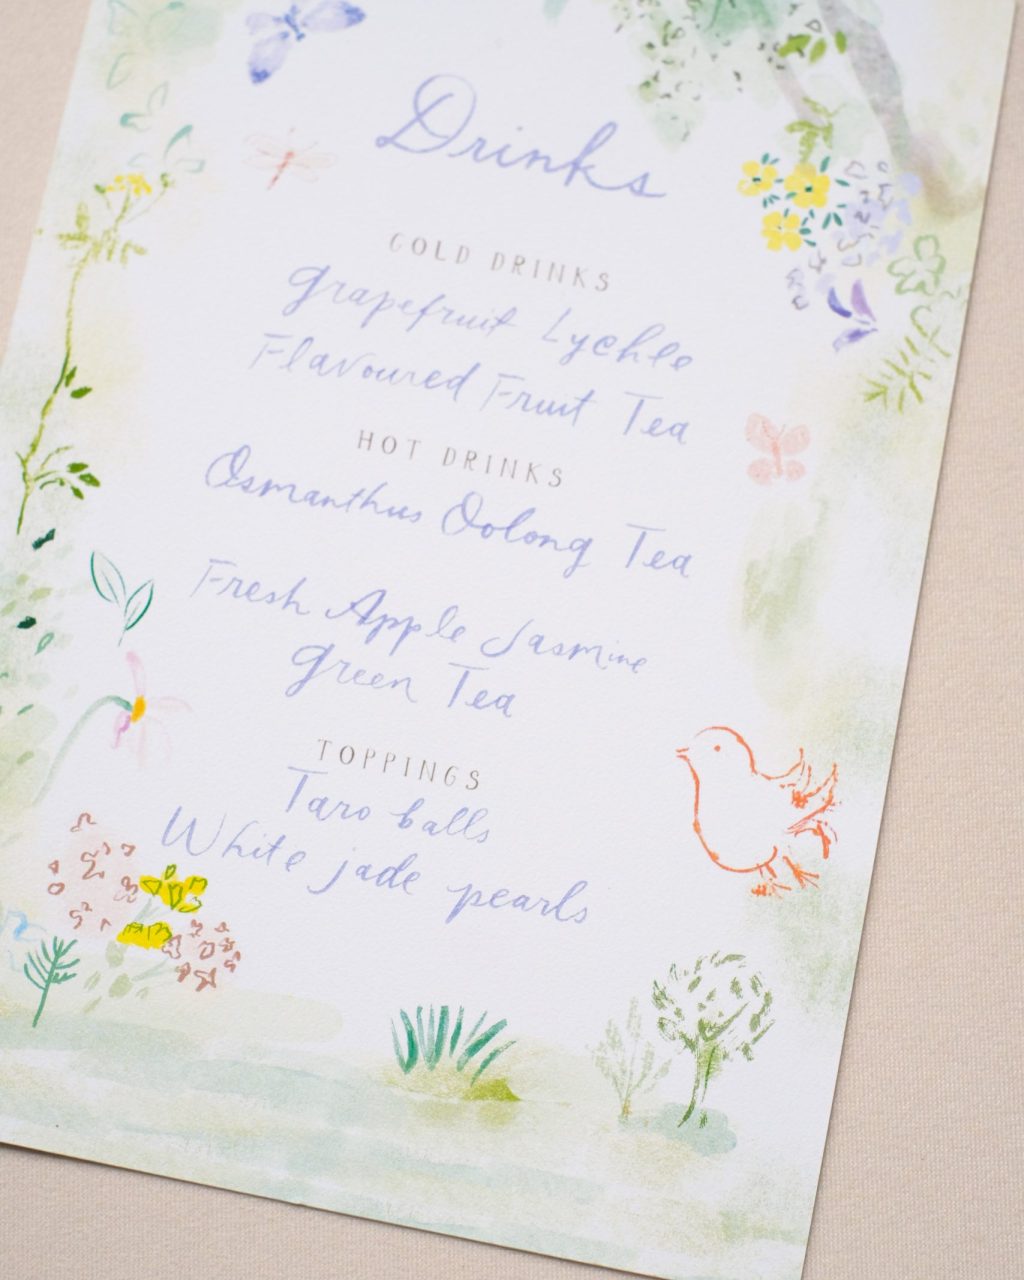 Drinks
COLD DRINKS
Grapefruit Lychee
Flavoured Fruit Tea
HOT DRINKS
Osmanthus Oolong Tea
Fresh Apple Jasmine
Green Tea
TOPPINGS
Taro balls
White jade pearls